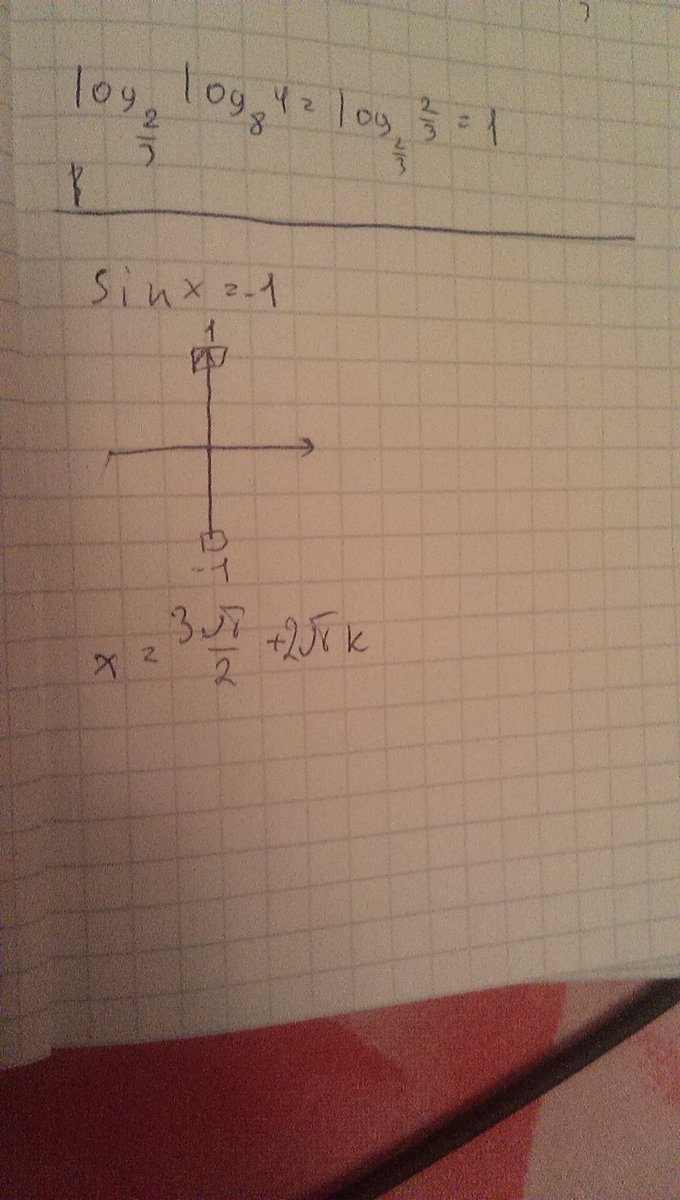 log_{2/3} log_8 4 = log_{2/3} 2/3 = 1
sin x = -1
1
-1
x = 3π/2 + 2πk